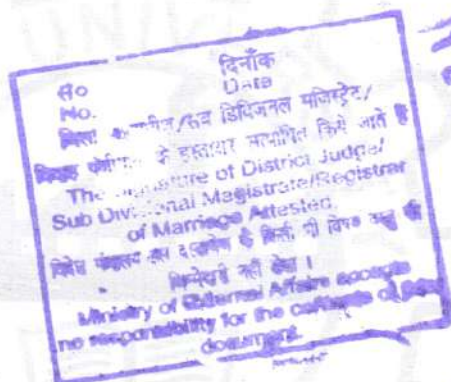 सं० दिनाँक
No. Date
जिला /सब डिविजनल मजिस्ट्रेट/
विवाह के हस्ताक्षर सत्यापित किये जाते हैं
The Signature of District Judge/
Sub Divisional Magistrate/Registrar
of Marriage Attested.
विदेश मंत्रालय इस दस्तावेज के किसी भी विषय वस्तु की
जिम्मेदारी नहीं लेता ।
Ministry of External Affairs accepts
no responsibility for the contents of
document.